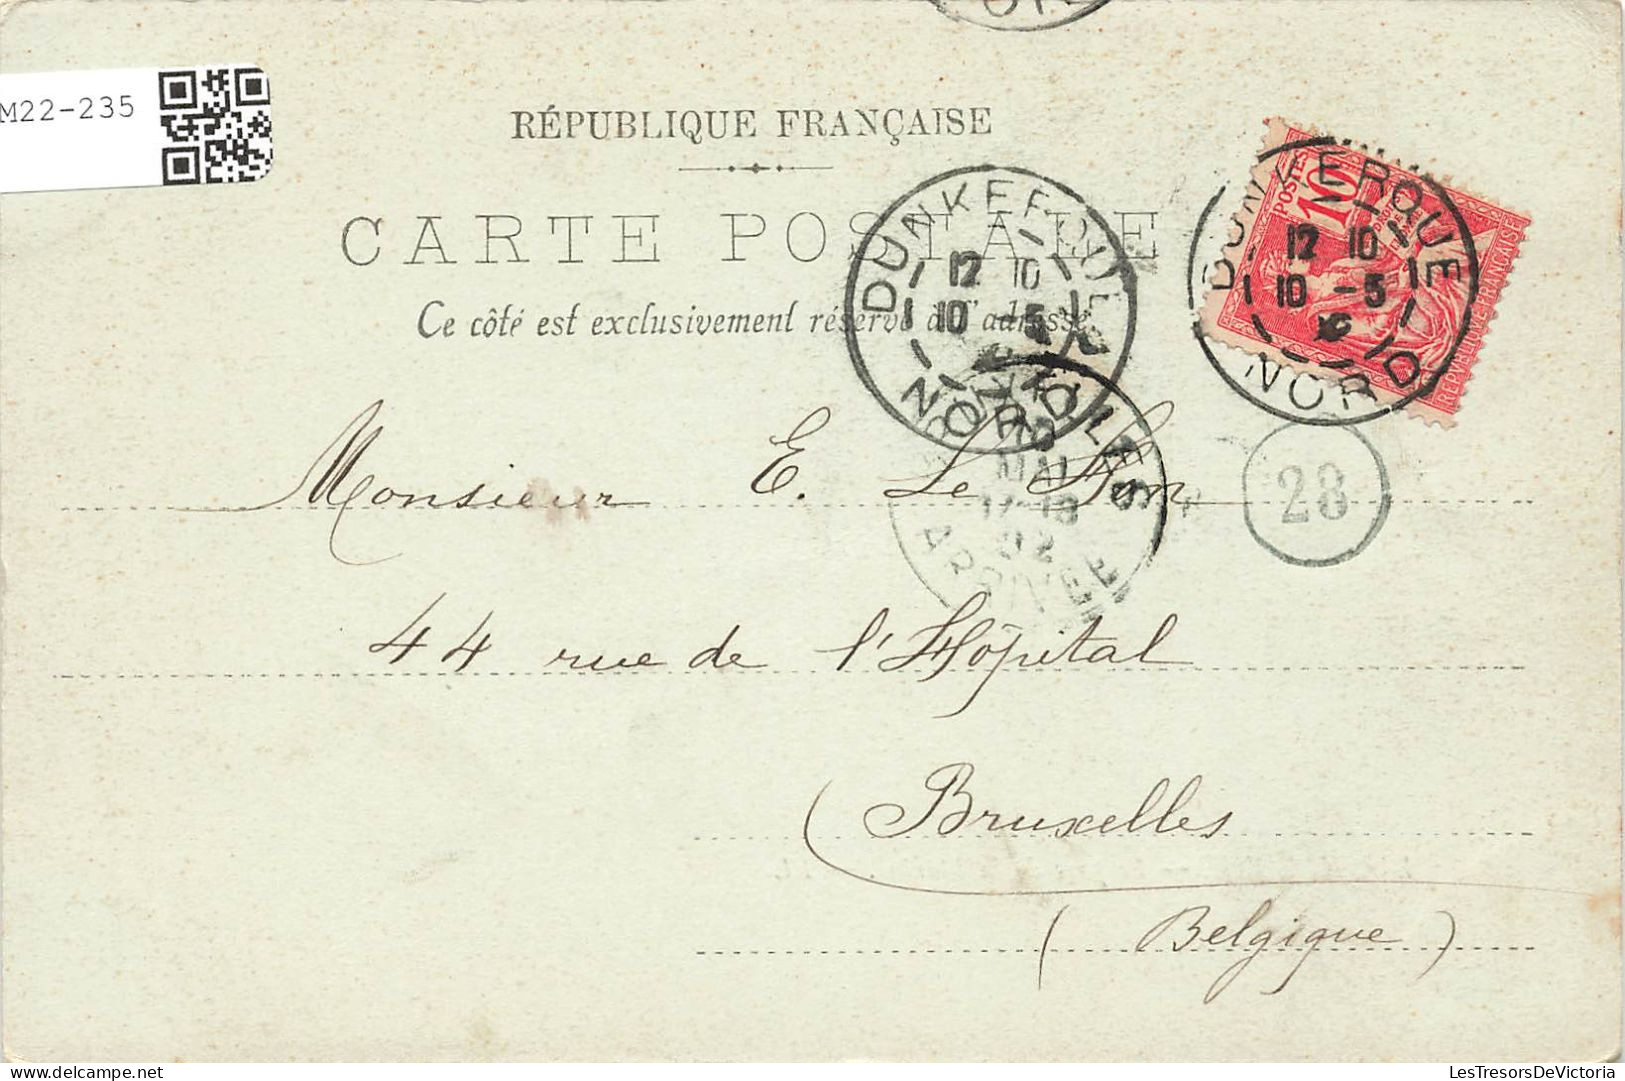 M22-235
RÉPUBLIQUE FRANÇAISE
CARTE POSTALE
Ce côté est exclusivement réservé à l'adresse
DUNKERQUE
12 10
10 -5
NORD
DUNKERQUE
12 10
10 -5
NORD
POSTES
10
REPUBLIQUE FRANÇAISE
10
MAI
17-18
02
ARRIVEE
28
Monsieur E. Le Hon
44 rue de l'Hôpital
Bruxelles
(Belgique)
LesTresorsDeVictoria